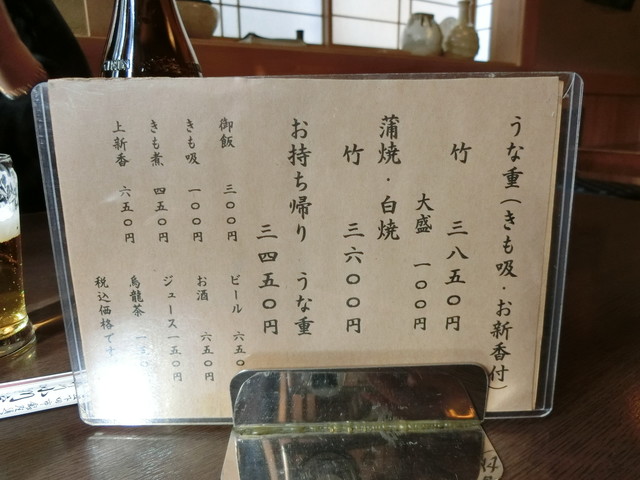 うな重(きも吸・お新香付)
竹 三八五〇円
大盛 一〇〇円
蒲焼・白焼
竹 三六〇〇円
お持ち帰り うな重
三四五〇円
御飯 三〇〇円
きも吸 一〇〇円
きも煮 四五〇円
上新香 六五〇円
ビール 六五〇
お酒 六五〇円
ジュース 一五〇円
烏龍茶
税込価格です